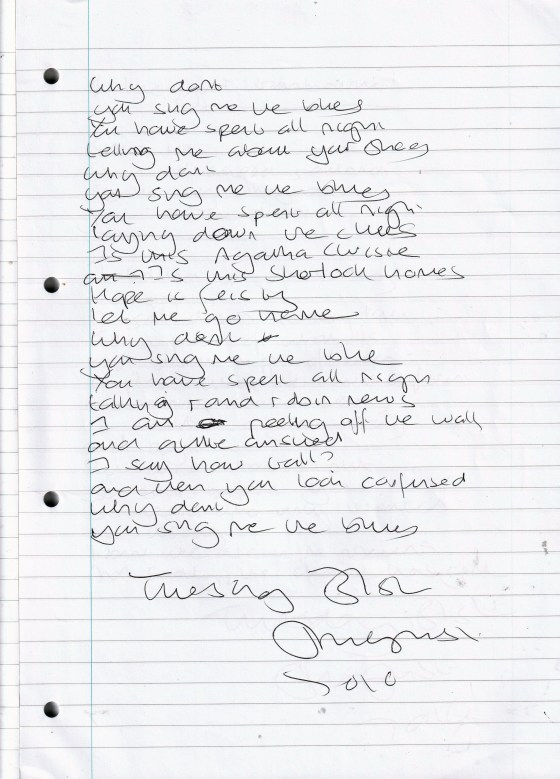 Why dont
you sing me the blues
You have spent all night
telling me about your shoes
Why dont
you sing me the blues
You have spent all night
laying down the clues
Is this Agatha Christie
Is this Sherlock Homes
Hope is
let me go home
Why dont
you sing me the blues
You have spent all night
talking round + doin news
I am peeling off the wall
and quite amused
I say how tall?
and then you look confused
Why dont
you sing me the blues
Tuesday 31st
August
2010